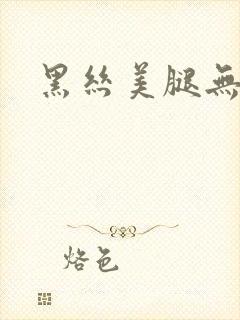 黑丝美腿無
烙色